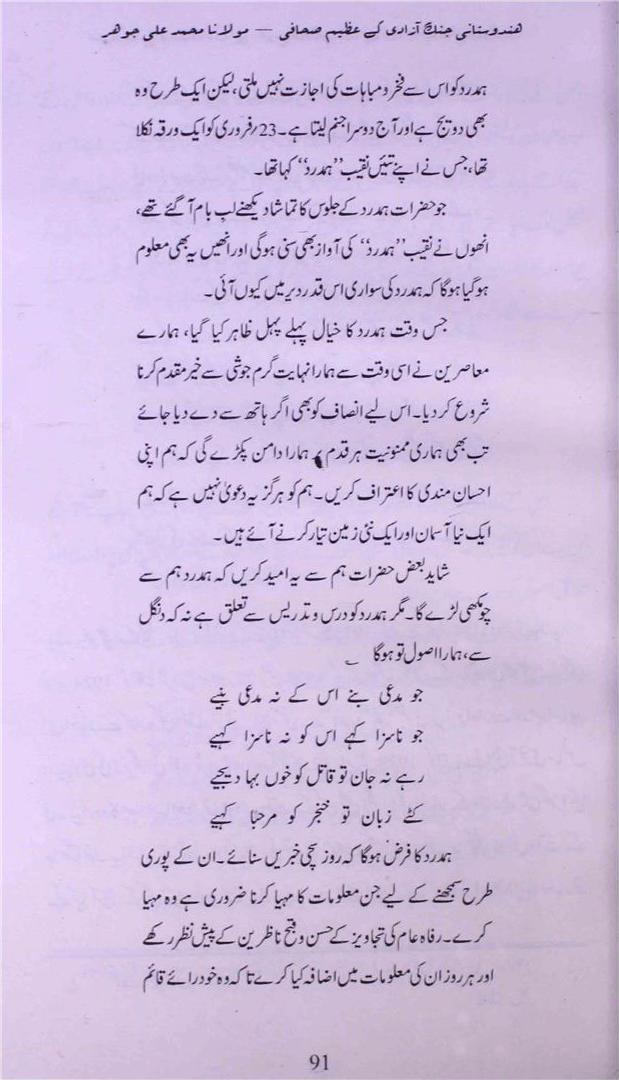 ہندوستانی جنگ آزادی کے عظیم صحافی — مولانا محمد علی جوہر
ہمدرد کو اس سے فخر و مباہات کی اجازت نہیں ملتی، لیکن ایک طرح وہ
بھی دویج ہے اور آج دوسرا جنم لیتا ہے۔ 23/فروری کو ایک ورقہ نکلا
تھا، جس نے اپنے تئیں نقیب ’’ہمدرد‘‘ کہا تھا۔
جو حضرات ہمدرد کے جلوس کا تماشا دیکھنے لب بام آ گئے تھے،
انھوں نے نقیب ’’ہمدرد‘‘ کی آواز بھی سنی ہوگی اور انھیں یہ بھی معلوم
ہو گیا ہوگا کہ ہمدرد کی سواری اس قدر دیر میں کیوں آئی۔
جس وقت ہمدرد کا خیال پہلے پہل ظاہر کیا گیا، ہمارے
معاصرین نے اسی وقت سے ہمارا نہایت گرم جوشی سے خیر مقدم کرنا
شروع کر دیا۔ اس لیے انصاف کو بھی اگر ہاتھ سے دے دیا جائے
تب بھی ہماری ممنونیت ہر قدم پر ہمارا دامن پکڑے گی کہ ہم اپنی
احسان مندی کا اعتراف کریں۔ ہم کو ہرگز یہ دعویٰ نہیں ہے کہ ہم
ایک نیا آسمان اور ایک نئی زمین تیار کرنے آئے ہیں۔
شاید بعض حضرات ہم سے یہ امید کریں کہ ہمدرد ہم سے
چومکھی لڑے گا۔ مگر ہمدرد کو درس و تدریس سے تعلق ہے نہ کہ دنگل
سے، ہمارا اصول تو ہوگا ؂
جو مدعی بنے اس کے نہ مدعی بنیے
جو ناسزا کہے اس کو نہ ناسزا کہیے
رہے نہ جان تو قاتل کو خوں بہا دیجیے
کٹے زبان تو خنجر کو مرحبا کہیے
ہمدرد کا فرض ہوگا کہ روز سچی خبریں سنائے۔ ان کے پوری
طرح سمجھنے کے لیے جن معلومات کا مہیا کرنا ضروری ہے وہ مہیا
کرے۔ رفاہ عام کی تجاویز کے حسن و قبح ناظرین کے پیش نظر رکھے
اور ہر روز ان کی معلومات میں اضافہ کیا کرے تاکہ وہ خود رائے قائم
91